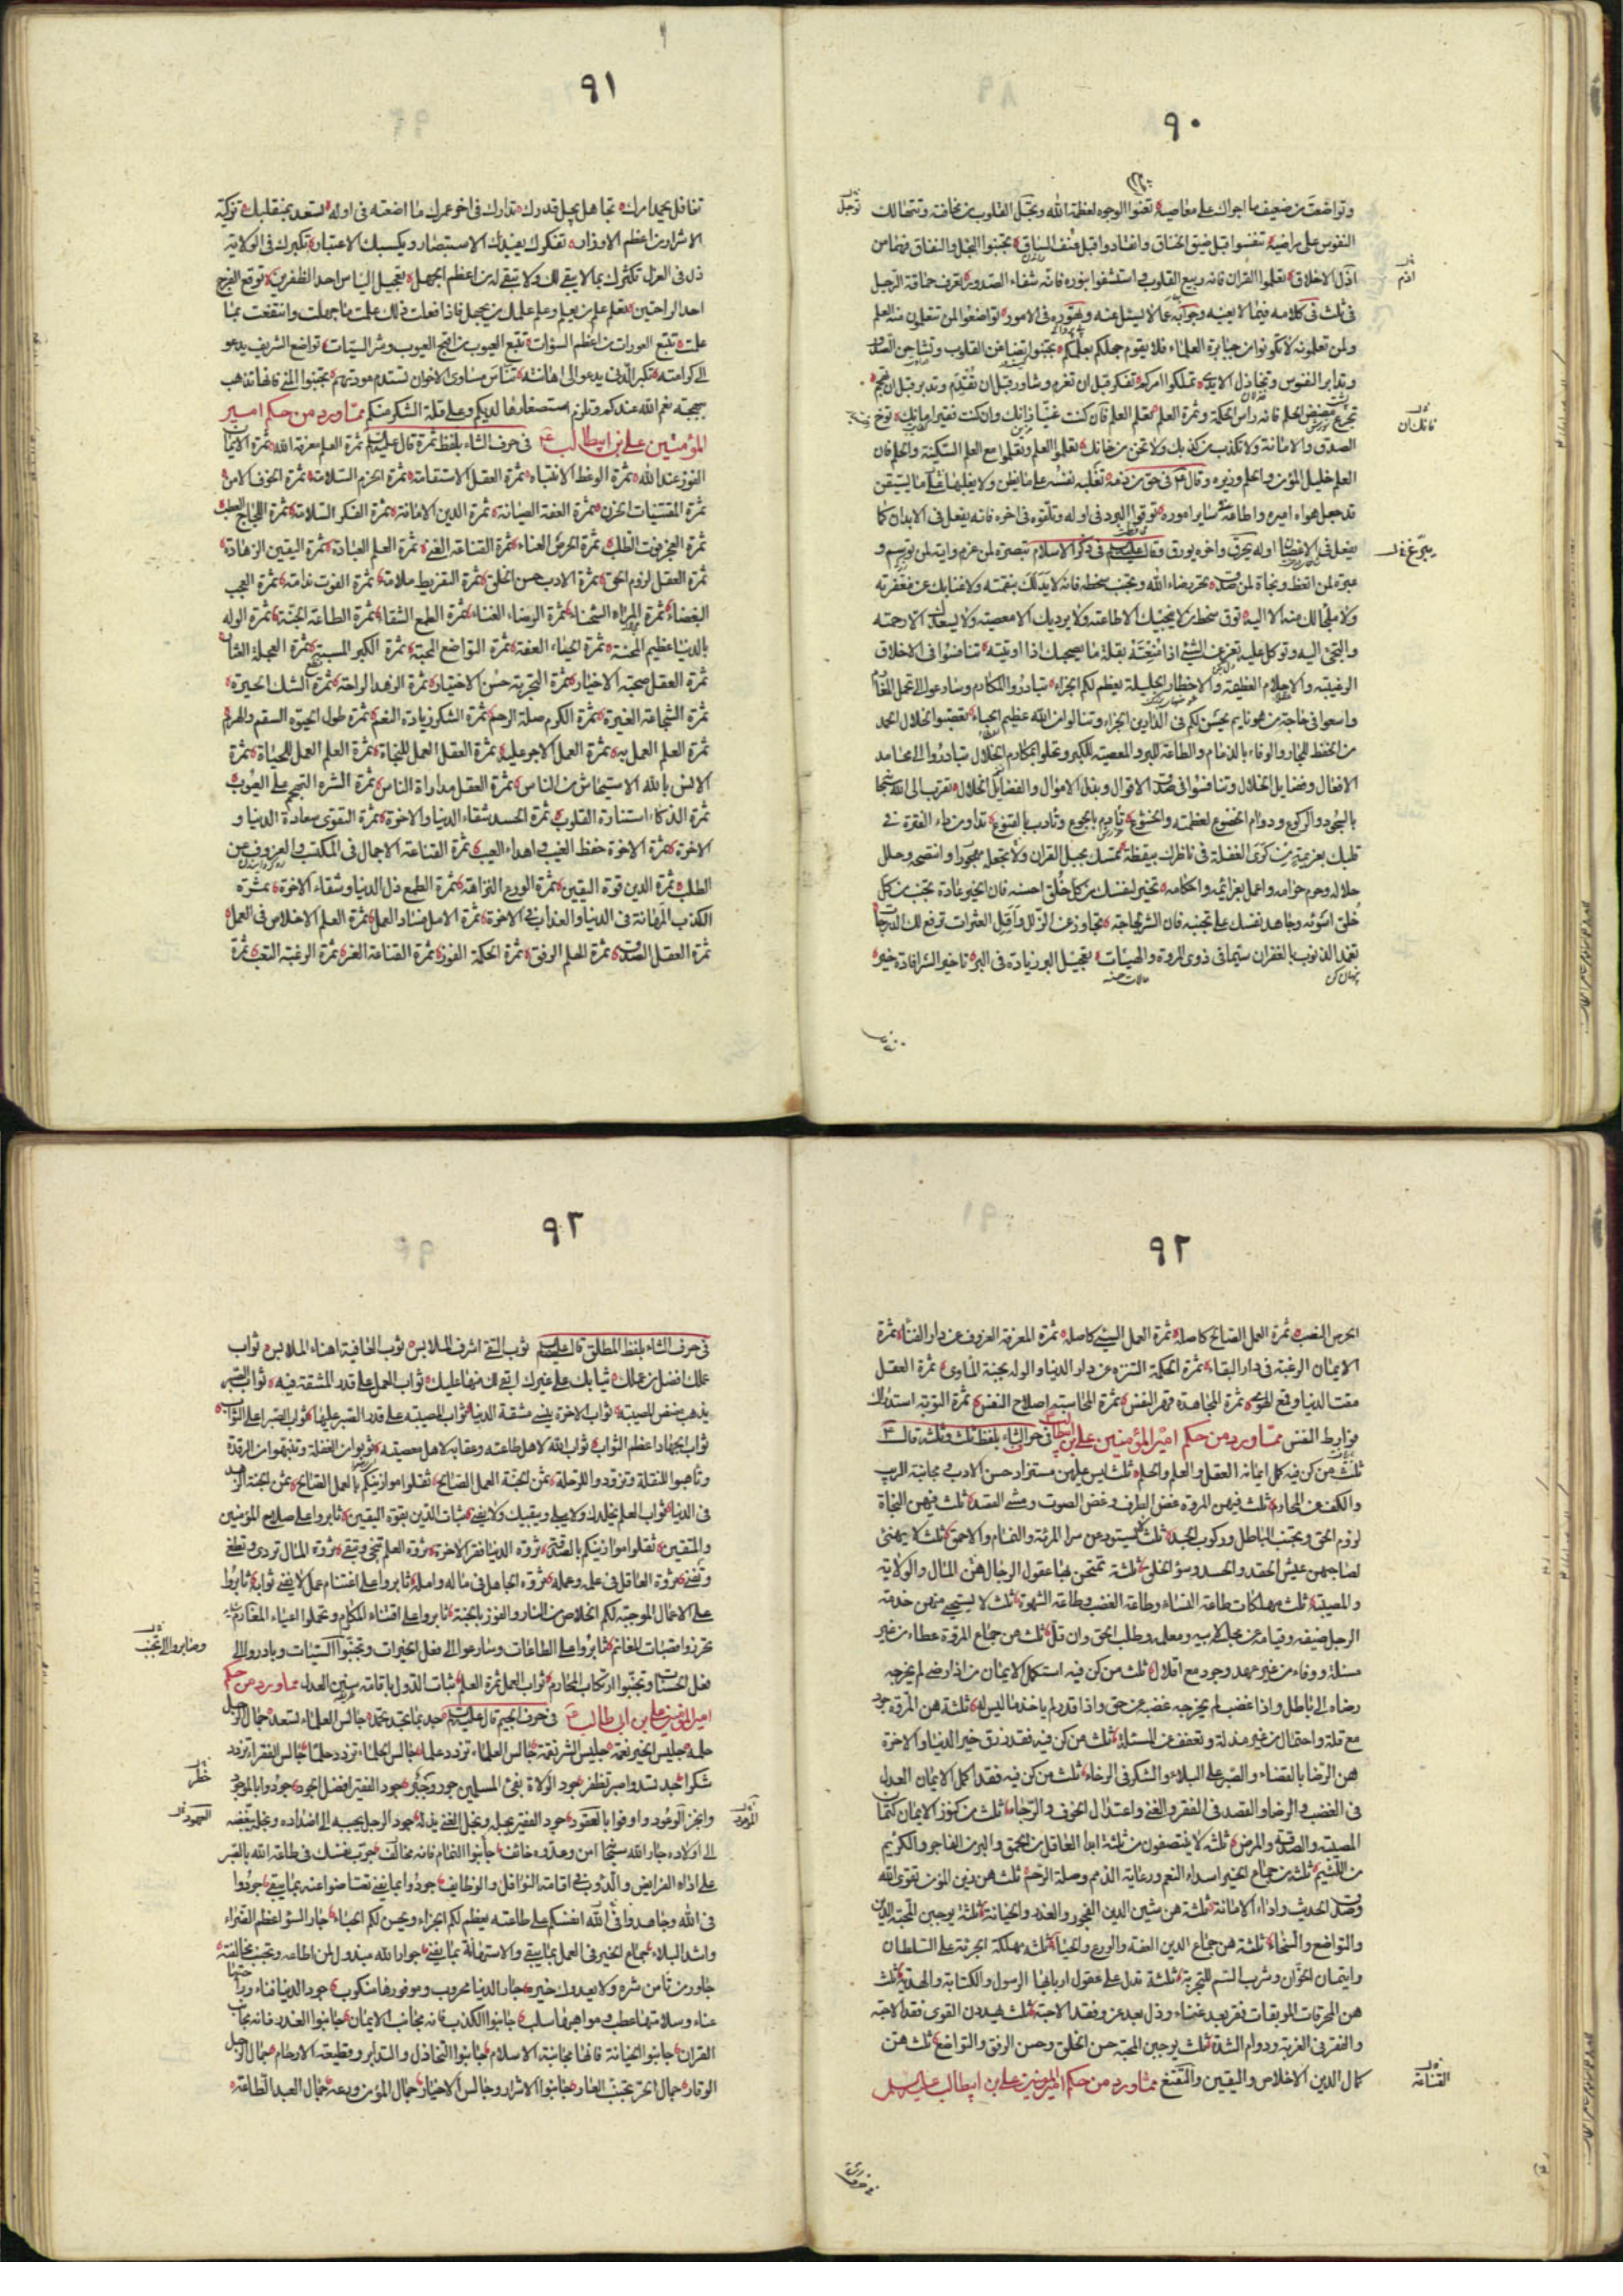 ٩٠
وتواضعت من ضعيف ما اجراك على معاصيه تعنوا الوجوه لعظمة الله وتجل القلوب من مخافته وتتهالك
النفوس على مراضيه تنفسوا قبل ضيق الخناق وانقادوا قبل عنف السياق تجنبوا البخل والنفاق فهما من
اذل الاخلاق تعلموا القران فانه ربيع القلوب واستشفوا بنوره فانه شفاء الصدور تعرف حماقة الرجل
فى ثلث فى كلامه فيما لا يعنيه وجوابه عما لا يسئل عنه وتهوره فى الامور تواضعوا لمن تتعلمون منه العلم
ولمن تعلمونه ولا تكونوا من جبابرة العلماء فلا يقوم جهلكم بعلمكم تجنبوا تضاغن القلوب وتشاحن الصدور
وتدابر النفوس وتخاذل الايدى تملكوا امركم تفكر قبل ان تعزم وشاور قبل ان تقدم وتدبر قبل ان تهجم
تجرع مضض الحلم فانه راس الحكمة وثمرة العلم تعلم العلم فان كنت غنيا زانك وان كنت فقيرا مانك توخ
الصدق والامانة ولا تكذب من كذبك ولا تخن من خانك تعلموا العلم وتعلموا مع العلم السكينة والحلم فان
العلم خليل المؤمن والحلم وزيره وقال فى حق من ذمه تغلبه نفسه على ما يظن ولا يغلبها على ما يستيقن
قد جعل هواه اميره واطاعه فى ساير اموره توقوا البرد فى اوله وتلقوه فى اخره فانه يفعل فى الابدان كما
يفعل فى الاغصان اوله يحرق واخره يورق وقال عليه السلام فى ذكر الاسلام تبصرة لمن عزم واية لمن توسم و
عبرة لمن اتعظ ونجاة لمن صدق تحر رضاء الله وتجنب سخطه فانه لا يد لك بنقمته ولا غنا بك عن مغفرته
ولا ملجا لك منه الا اليه توق سخط من لا ينجيك الا طاعته ولا يرديك الا معصيته ولا يسعك الا رحمته
والتجئ اليه وتوكل عليه تعز عن الشئ اذا منعته بقلة ما يصحبك اذا اوتيته تنافسوا فى الاخلاق
الرغيبة والاحلام العظيمة والاخطار الجليلة يعظم لكم الجزاء تبادروا المكارم وسارعوا الى تحمل المغارم
واسعوا فى حاجة من هو نايم يحسن لكم فى الدارين الجزاء وتنالوا من الله عظيم الحباء تعصبوا لخلال الحمد
من الحفظ للجار والوفاء بالذمام والطاعة للبر والمعصية للكبر وتحلوا بمكارم الخلال تبادروا الى محامد
الافعال وفضايل الخلال وتنافسوا فى صدق الاقوال وبذل الاموال والفضايل الخلال تقرب الى الله سبحانه
بالسجود والركوع ودوام الخضوع لعظمته والخشوع تادم بالجوع وتادب بالقنوع تداو من داء الفترة فى
قلبك بعزيمة ومن كرى الغفلة فى ناظرك بيقظة تمسك بحبل القران ولا تجعله مهجورا وانتصحه وحلل
حلاله وحرم حرامه واعمل بعزائمه واحكامه تخير لنفسك من كل خلق احسنه فان الخير عادة تجنب من كل
خلق اسوئه وجاهد نفسك على تجنبه فان الشر لجاجة تجاوز عن الزلل واقل العثرات ترفع لك الدرجات
تغمد الذنوب بالغفران سيما فى ذوى المروة والهيئات تعجيل البر زيادة فى البر تاخير الشر افادة خير
توجل
اذم
فانك ان
٩١
تغافل يحمد امرك تجاهل يجل قدرك تدارك فى اخر عمرك ما اضعته فى اوله تسعد بمنقلبك تزكية
الاشرار من اعظم الاوزار تفكرك يفيدك الاستبصار ويكسبك الاعتبار تكبرك فى الولاية
ذل فى العزل تكثرك بما لا يبقى لك ولا تبقى له من اعظم الجهل تعجيل الياس احد الظفرين توقع الفرج
احد الراحتين تعلم علم من يعلم وعلم علمك من يجهل فاذا فعلت ذلك علمت ما جهلت وانتفعت بما
علمت تتبع العورات من اعظم السؤات تتبع العيوب من اقبح العيوب وشر السيئات تواضع الشريف يدعو
الى كرامته تكبر الدنى يدعو الى اهانته تناس مساوى الاخوان تستدم مودتهم تجنبوا المنى فانها تذهب
ببهجة نعم الله عندكم وتلزم استصغارها لديكم وعلى قلة الشكر منكم مما ورد من حكم امير
المؤمنين على بن ابيطالب فى حرف الثاء بلفظ ثمرة قال عليه السلام ثمرة العلم معرفة الله ثمرة الايمان
الفوز عند الله ثمرة الوعظ الانتباه ثمرة العقل الاستقامة ثمرة الحزم السلامة ثمرة الخوف الامن
ثمرة المقتنيات الحزن ثمرة العفة الصيانة ثمرة الدين الامانة ثمرة الفكر السلامة ثمرة اللجاج العطب
ثمرة العجز فوت الطلب ثمرة الحرص العناء ثمرة القناعة الغنى ثمرة العلم العبادة ثمرة اليقين الزهادة
ثمرة العقل لزوم الحق ثمرة الادب حسن الخلق ثمرة التفريط ملامة ثمرة الفوت ندامة ثمرة العجب
البغضاء ثمرة المراء الشحناء ثمرة الرضاء الغناء ثمرة الطمع الشقاء ثمرة الطاعة الجنة ثمرة الوله
بالدنيا عظيم المحنة ثمرة الحياء العفة ثمرة التواضع المحبة ثمرة الكبر المسبة ثمرة العجلة العثار
ثمرة العقل صحبة الاخيار ثمرة التجربة حسن الاختيار ثمرة الزهد الراحة ثمرة الشك الحيرة
ثمرة الشجاعة الغيرة ثمرة الكرم صلة الرحم ثمرة الشكر زيادة النعم ثمرة طول الحيوة السقم والهرم
ثمرة العلم العمل به ثمرة العمل الاجر عليه ثمرة العقل العمل للنجاة ثمرة العلم العمل للحياة ثمرة
الانس بالله الاستيحاش من الناس ثمرة العقل مداراة الناس ثمرة الشره التهجم على العيوب
ثمرة الذكاء استنارة القلوب ثمرة الحسد شقاء الدنيا والاخرة ثمرة التقوى سعادة الدنيا و
الاخرة ثمرة الاخوة حفظ الغيب واهداء العيب ثمرة القناعة الاجمال فى المكتسب والعزوف عن
الطلب ثمرة الدين قوة اليقين ثمرة الورع النزاهة ثمرة الطمع ذل الدنيا وشقاء الاخرة ثمرة
الكذب المهانة فى الدنيا والعذاب فى الاخرة ثمرة الامل فساد العمل ثمرة العلم الاخلاص فى العمل
ثمرة العقل الصدق ثمرة الحلم الرفق ثمرة الحكمة الفوز ثمرة القناعة العز ثمرة الرغبة التعب ثمرة
٩٢
الحرص النصب ثمرة العمل الصالح كاصله ثمرة العمل السيئ كاصله ثمرة المعرفة العزوف عن دار الفنا ثمرة
الايمان الرغبة فى دار البقاء ثمرة الحكمة التنزه عن دار الدنيا والوله بجنة الماوى ثمرة العقل
مقت الدنيا وقمع الهوى ثمرة المجاهدة قهر النفس ثمرة المحاسبة اصلاح النفس ثمرة التوبة استدراك
فوارط النفس مما ورد من حكم امير المؤمنين على بن ابيطالب فى حرف الثاء بلفظ ثلث وثلثة قال
ثلث من كن فيه كمل ايمانه العقل والعلم والحلم ثلث ليس عليهن مستزاد حسن الادب ومجانبة الريب
والكف عن المحارم ثلث فيهن المروة غض الطرف وغض الصوت ومشى القصد ثلث فيهن النجاة
لزوم الحق وتجنب الباطل وركوب الجد ثلث لا يستودعن سرا المرئة والنمام والاحمق ثلث لا يهنئ
لصاحبهن عيش الحقد والحسد وسؤ الخلق ثلثة تمتحن بها عقول الرجال هن المال والولاية
والمصيبة ثلث مهلكات طاعة النساء وطاعة الغضب وطاعة الشهوة ثلث لا يستحيى منهن خدمة
الرجل ضيفه وقيامه عن مجلسه لابيه ومعلمه وطلب الحق وان قل ثلث من جماع المروة عطاء من غير
مسئلة ووفاء من غير عهد وجود مع اقلال ثلث من كن فيه استكمل الايمان من اذا رضى لم يخرجه
رضاه الى باطل واذا غضب لم يخرجه غضبه عن حق واذا قدر لم ياخذ ما ليس له ثلثة هن المروة جود
مع قلة واحتمال من غير مذلة وتعفف عن المسئلة ثلث من كن فيه فقد رزق خير الدنيا والاخرة
هن الرضا بالقضاء والصبر على البلاء والشكر فى الرخاء ثلث من كن فيه فقد اكمل الايمان العدل
فى الغضب والرضا والقصد فى الفقر والغنى واعتدال الخوف والرجاء ثلث من كنوز الايمان كتمان
المصيبة والصدقة والمرض ثلثة لا ينتصفون من ثلثة ابدا العاقل من الاحمق والبر من الفاجر والكريم
من اللئيم ثلثة من جماع الخير اسداء النعم ورعاية الذمم وصلة الرحم ثلث هن زين المؤمن تقوى الله
وصدق الحديث واداء الامانة ثلثة هن شين الدين الفجور والغدر والخيانة ثلثة يوجبن المحبة الدين
والتواضع والسخاء ثلثة هن جماع الدين العفة والورع والحياء ثلثة مهلكة الجرئة على السلطان
وايتمان الخوان وشرب السم للتجربة ثلثة تدل على عقول اربابها الرسول والكتابة والهدية ثلث
هن المحرقات الموبقات فقر بعد غناء وذل بعد عز وفقد الاحبة ثلث يهددن القوى فقد الاحبة
والفقر فى الغربة ودوام الشدة ثلث يوجبن المحبة حسن الخلق وحسن الرفق والتواضع ثلث هن
كمال الدين الاخلاص واليقين والتقنع مما ورد من حكم امير المؤمنين على بن ابيطالب عليه السلام
القناعة
٩٢
فى حرف الثاء بلفظ المطلق قال عليه السلام ثوب التقى اشرف الملابس ثوب العافية اهناء الملابس ثواب
عملك افضل من عملك ثيابك على غيرك ابقى لك منها عليك ثواب العمل على قدر المشقة فيه ثواب الصبر
يذهب مضض المصيبة ثواب الاخرة ينسى مشقة الدنيا ثواب المصيبة على قدر الصبر عليها ثواب الصبر اعلى الثواب
ثواب الجهاد اعظم الثواب ثواب الله لاهل طاعته وعقابه لاهل معصيته ثوبوا من الغفلة وتنبهوا من الرقدة
وتاهبوا للنقلة وتزودوا للرحلة ثمن الجنة العمل الصالح ثقلوا موازينكم بالعمل الصالح ثمن الجنة الزهد
فى الدنيا ثواب العلم يخلدك ولا يبلى ويبقيك ولا يفنى ثبات الدين بقوة اليقين ثابروا على صلاح المؤمنين
والمتقين ثقلوا موازينكم بالصدقة ثروة الدنيا فقر الاخرة ثروة العلم تنجى وتبقى ثروة المال تردى وتطغى
وتفنى ثروة العاقل فى علمه وعمله ثروة الجاهل فى ماله وامله ثابروا على اغتنام عمل لا يفنى ثوابه ثابروا
على الاعمال الموجبة لكم الخلاص من النار والفوز بالجنة ثابروا على اقتناء المكارم وتحملوا اعباء المغارم
تحرزوا قصبات المغانم ثابروا على الطاعات وسارعوا الى فعل الخيرات وتجنبوا السيئات وبادروا الى
فعل الحسنات وتجنبوا ارتكاب المحارم ثواب العمل ثمرة العلم ثبات الدول باقامة سنن العدل مما ورد من حكم
امير المؤمنين على بن ابى طالب فى حرف الجيم قال عليه السلام جد بما تجد تحمد جالس العلماء تسعد جمال الرجل
حلمه جليس الخير نعمة جليس الشر نقمة جالس العلماء تزدد علما جالس الحلماء تزدد حلما جالس الفقراء تزدد
شكرا جد تسد واصبر تظفر جود الولاة بفئ المسلمين جور وختر جود الفقير افضل الجود جودوا بالموجود
وانجزوا الوعود واوفوا بالعقود جود الفقير يجله وبخل الغنى يذله جود الرجل يحببه الى اضداده وبخله يبغضه
الى اولاده جار الله سبحانه امن وعدوه خائف جانبوا التخاذل فانه مخالف جرب نفسك فى طاعة الله بالصبر
على اداء الفرايض والدؤب فى اقامة النوافل والوظايف جودوا بما يفنى تعتاضوا عنه بما يبقى جودوا
فى الله وجاهدوا فى الله انفسكم على طاعته يعظم لكم الجزاء ويحسن لكم الحباء جار السؤ اعظم الضراء
واشد البلاء جماع الخير فى العمل بما يبقى والاستهانة بما يفنى جوار الله مبذول لمن اطاعه وتجنب مخالفته
جاور من تامن شره ولا يعدوك خيره جار الدنيا محروب وموفورها منكوب جود الدنيا فناء وراحتها
عناء وسلامتها عطب ومواهبها سلب جانبوا الكذب فانه مجانب الايمان جانبوا الغدر فانه مجانب
القران جانبوا الخيانة فانها مجانبة الاسلام جانبوا التخاذل والتدابر وقطيعة الارحام جمال الرجل
الوقار جمال الحر تجنب العار جانبوا الاشرار وجالسوا الاخيار جمال المؤمن ورعه جمال العبد الطاعة
خطر